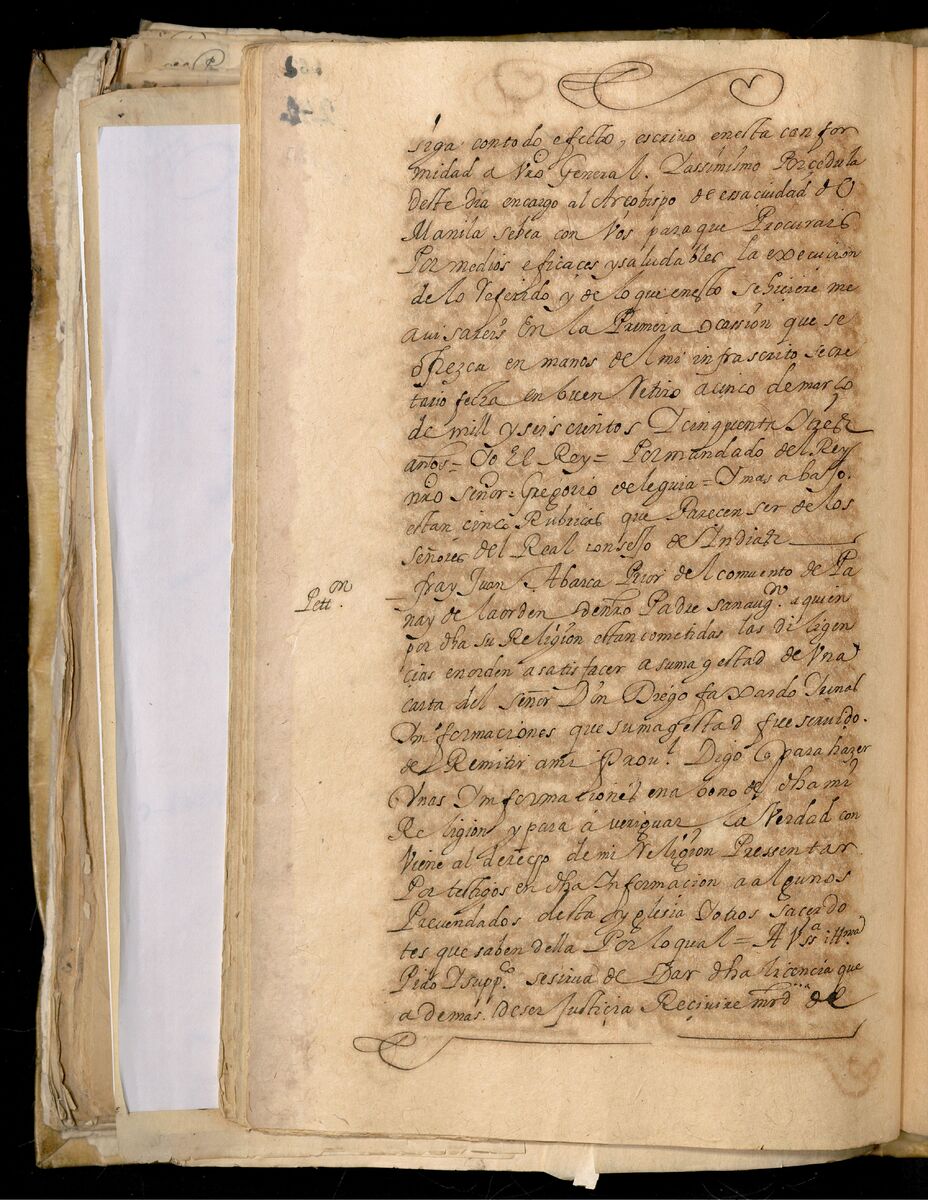 siga con todo efecto, escrivo en esta confor
midad a Vro General. Y assimismo Por cedula
deste dia encargo al Arcobispo de essa ciudad de
Manila se bea con Vos para que Procurais
Por medios eficaces y saludables la execucion
de lo Referido y de lo que en esto se hiciere me
avisareis En la Primera ocassion que se
ofrezca en manos del mi infrascrito secre
tario fecha en buen Retiro a cinco de março
de mill y seis cientos Y cinquenta
años = Yo El Rey = Por mandado del Rey
nro señor = Gregorio de leguia = Y mas abajo
estan cinco Rubricas que Parecen ser de los
señores del Real consejo de Indias
Petton.
fray Juan Abarca Prior del comvento de Pa
nay de la orden de nro Padre san augn. a quien
por dha su Religion estan cometidas las diligen
cias en orden a satisfacer a su magestad de Una
carta del señor Don Diego faxardo Y unas
Informaciones que su magestad fue servido
de Remitir a mi Prou.l Digo q para hazer
Unas Informaciones en abono de dha mi
Religion y para averiguar la Verdad con
viene al derecho de mi Religion Pressentar
Por testigos en dha Informacion a algunos
Prevendados desta Iglesia Y otros sacerdo
tes que saben della Por lo qual = A Vssa illma
Pido Y suppco. se sirva de Dar dha licencia que
ademas de ser Justicia Recivire mrd de